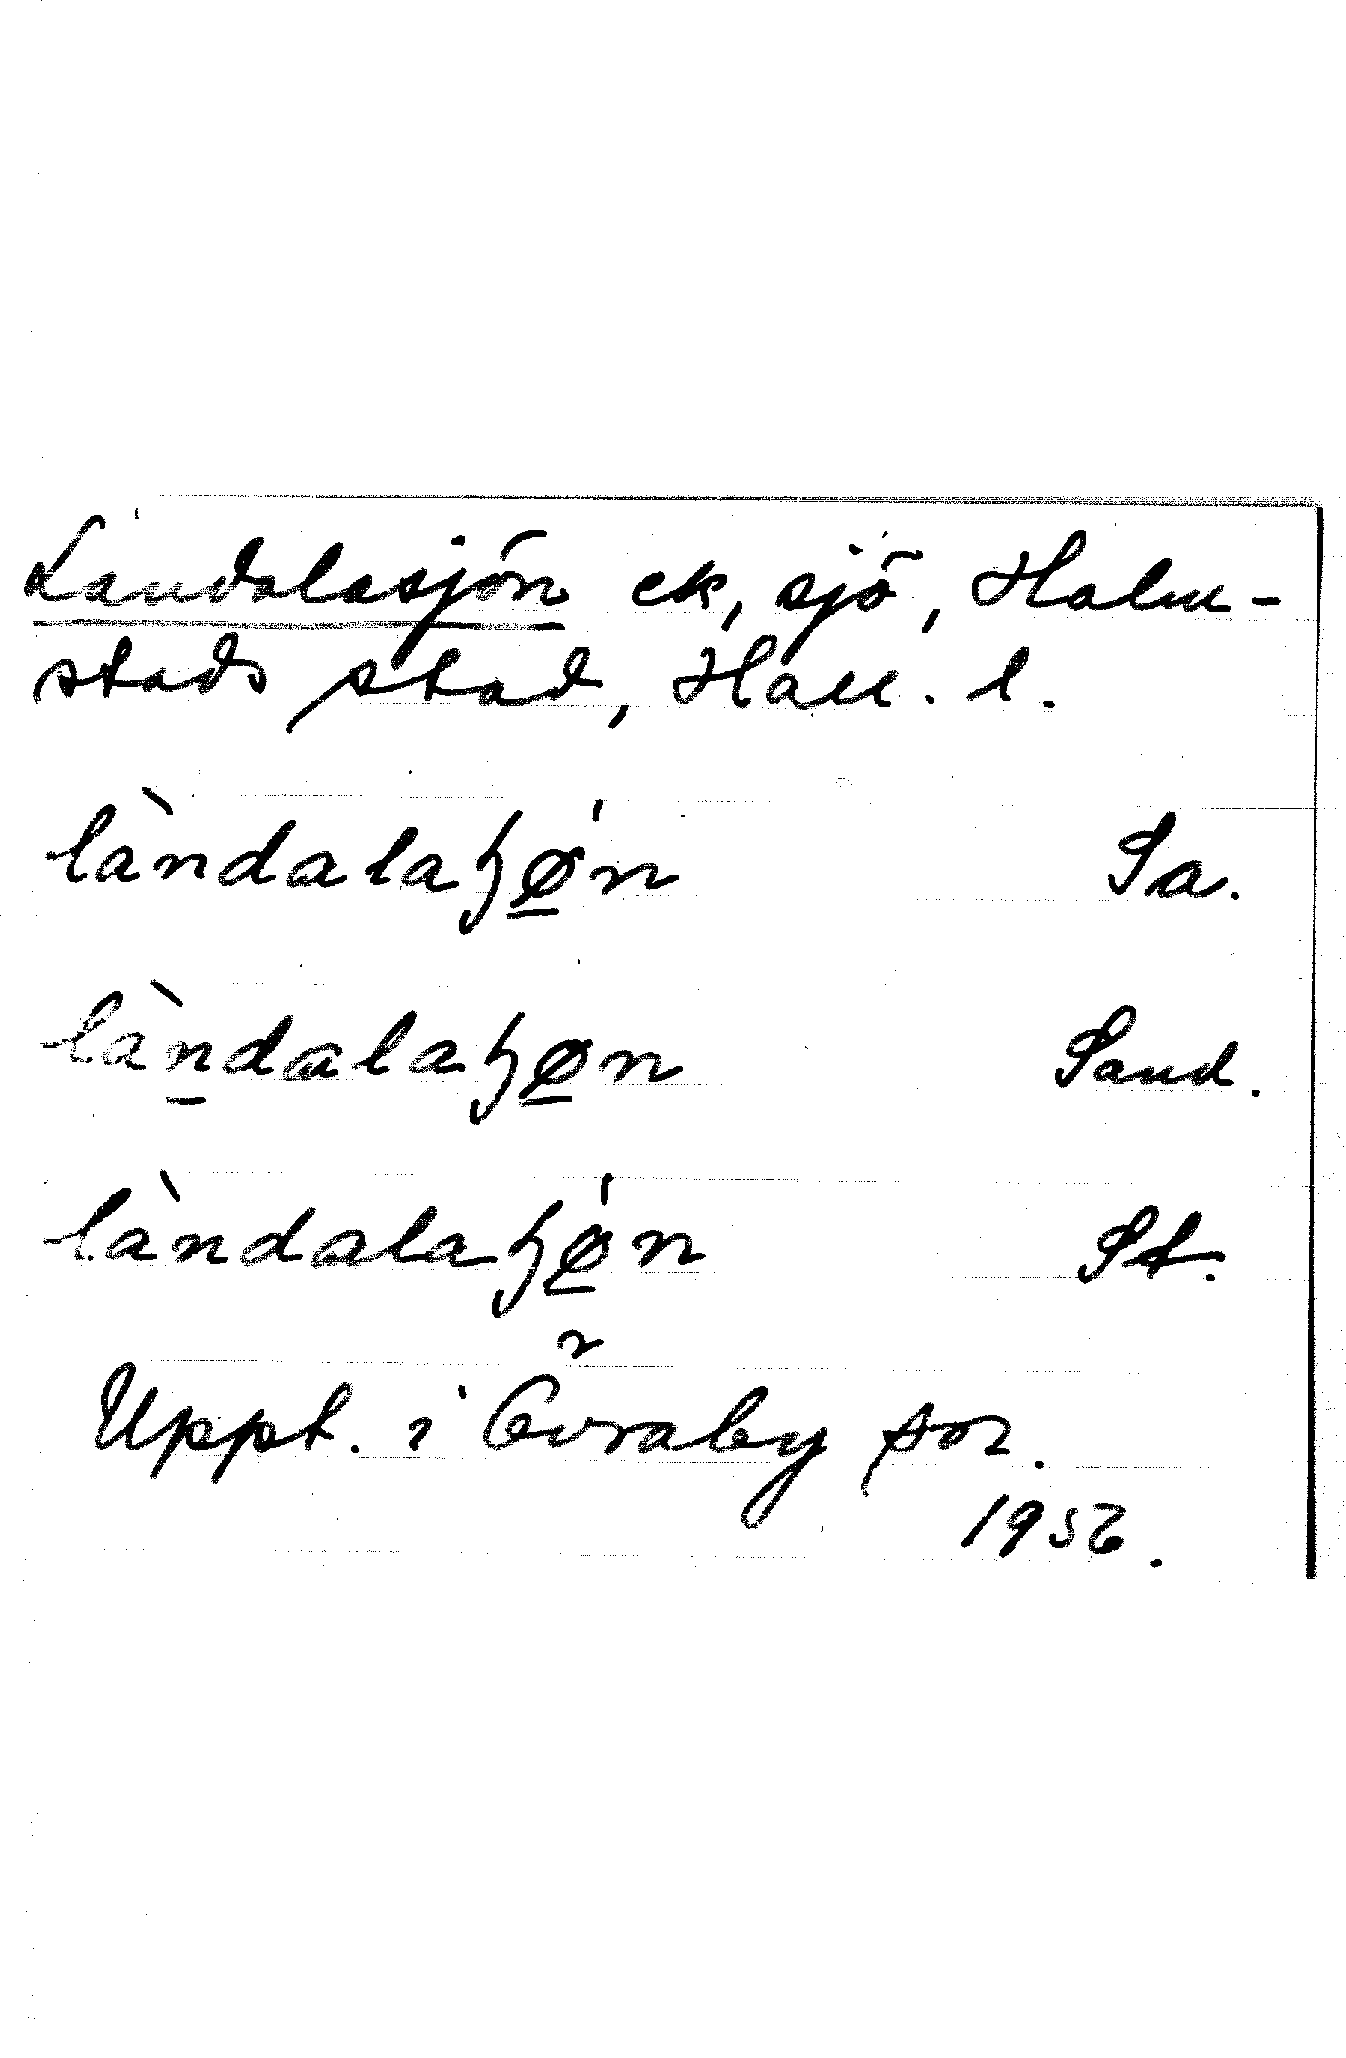 Landalasjön ek, sjö, Halm-
stads stad, Hall. l.
làndalaɧǿ̱n Sa.
làṉdalaɧø̱n Sand.
làndalaɧǿ̱n St.
Uppt. i Övraby sor.
1956.